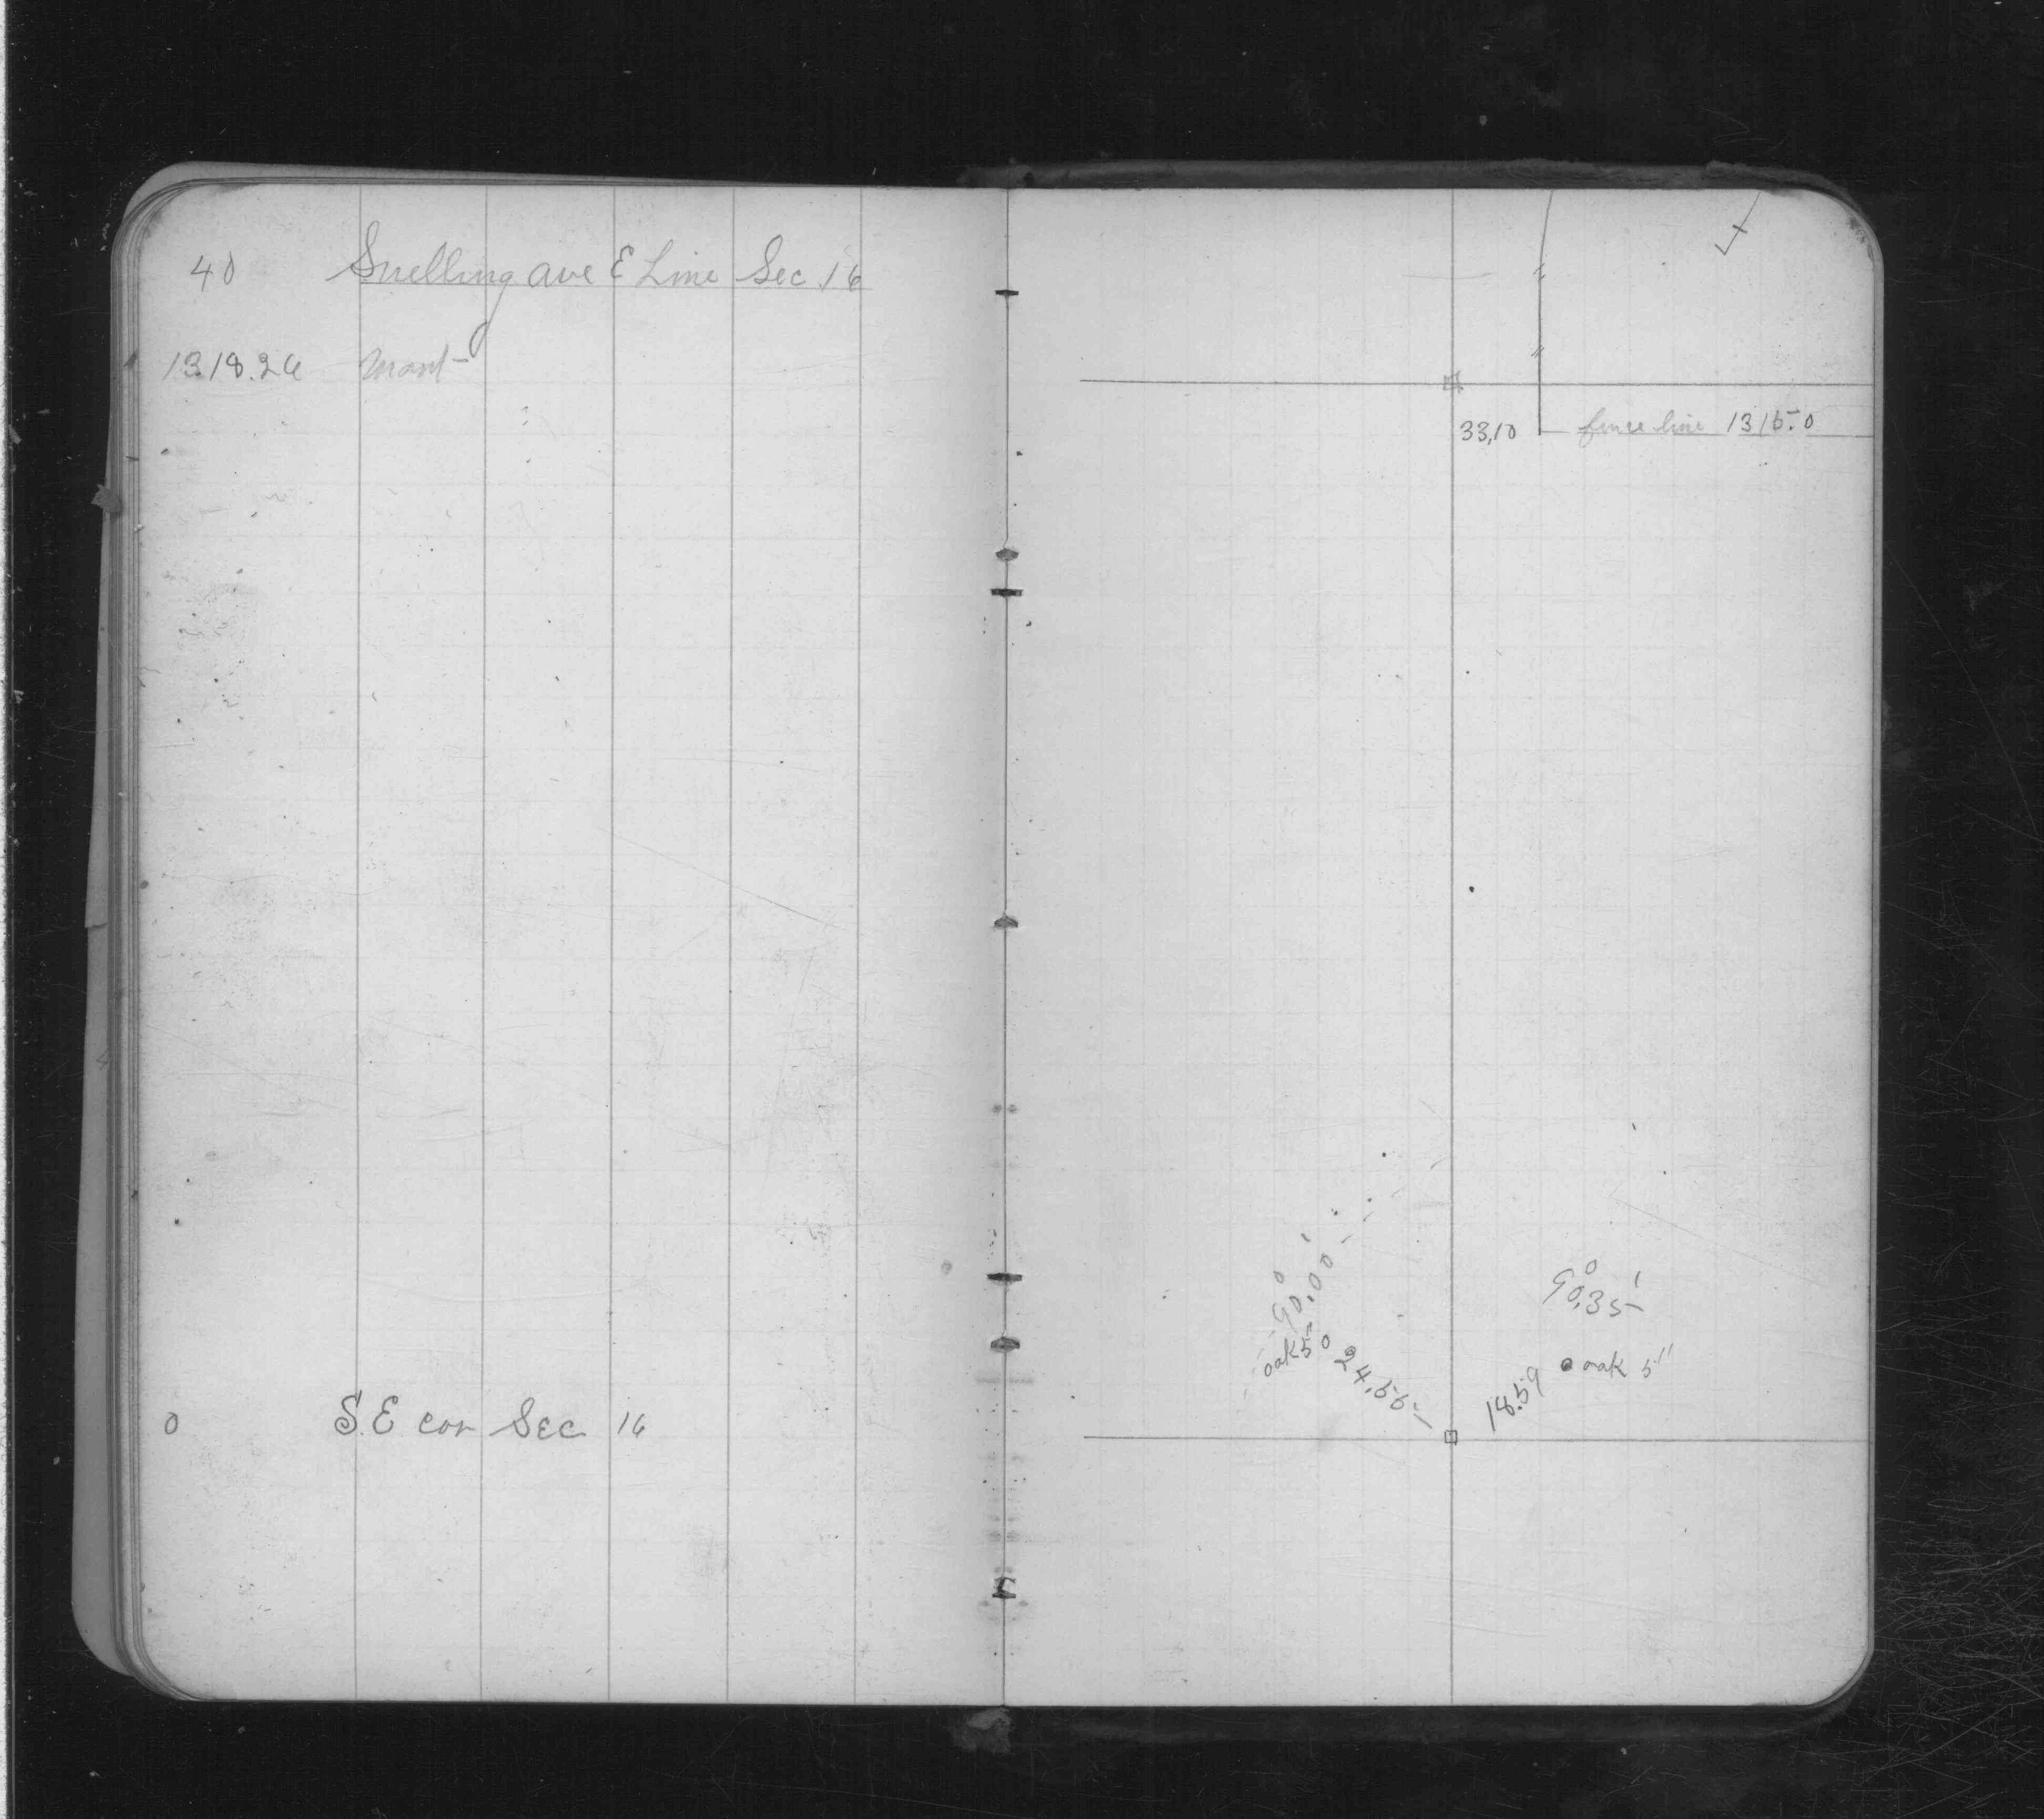 40 Snelling ave E Line Sec. 16
1318.26 mont
0 S.E cor Sec 16
33,10 fence line 1315.0
90°,00'
oak 5"
24,55
90°,35'
oak 5"
18.59